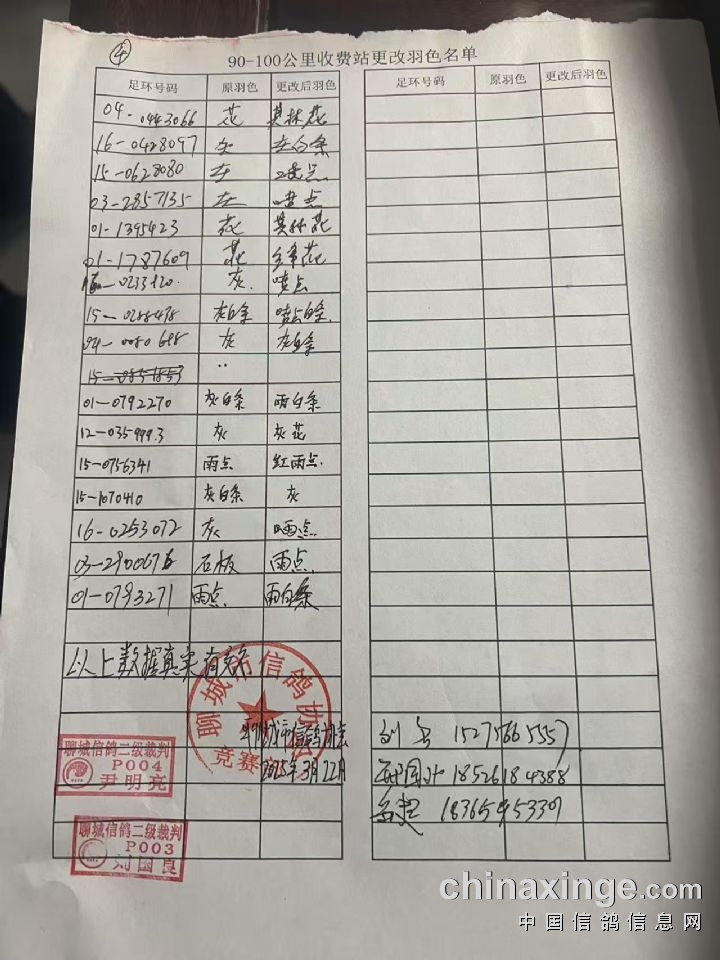 ④
90-100公里收费站更改羽色名单
足环号码 原羽色 更改后羽色 足环号码 原羽色 更改后羽色
04-0443066 花 其林花
16-0428097 灰 灰白条
15-0628080 灰
03-2857135 灰 点
01-1395423 花 其林花
01-1787609 花 花
灰 喷点
15-0288478 灰白条 喷点白条
04-0080688 灰 灰白条
15-0851853
01-0792270 灰白条 雨白条
12-0359993 灰 灰花
15-0756341 雨点 红雨点
15-1070410 灰白条 灰
16-0253072 灰 点
03-2900676 石板 雨点
01-0793271 雨点 雨白条
以上数据真实有效
聊城市信鸽协会
竞赛
聊城市信鸽协会
2025年3月22日
15275665557
18526184388
18365495339
聊城信鸽二级裁判
P004
尹明亮
聊城信鸽二级裁判
P003
刘国良
chinaxinge.com
中国信鸽信息网